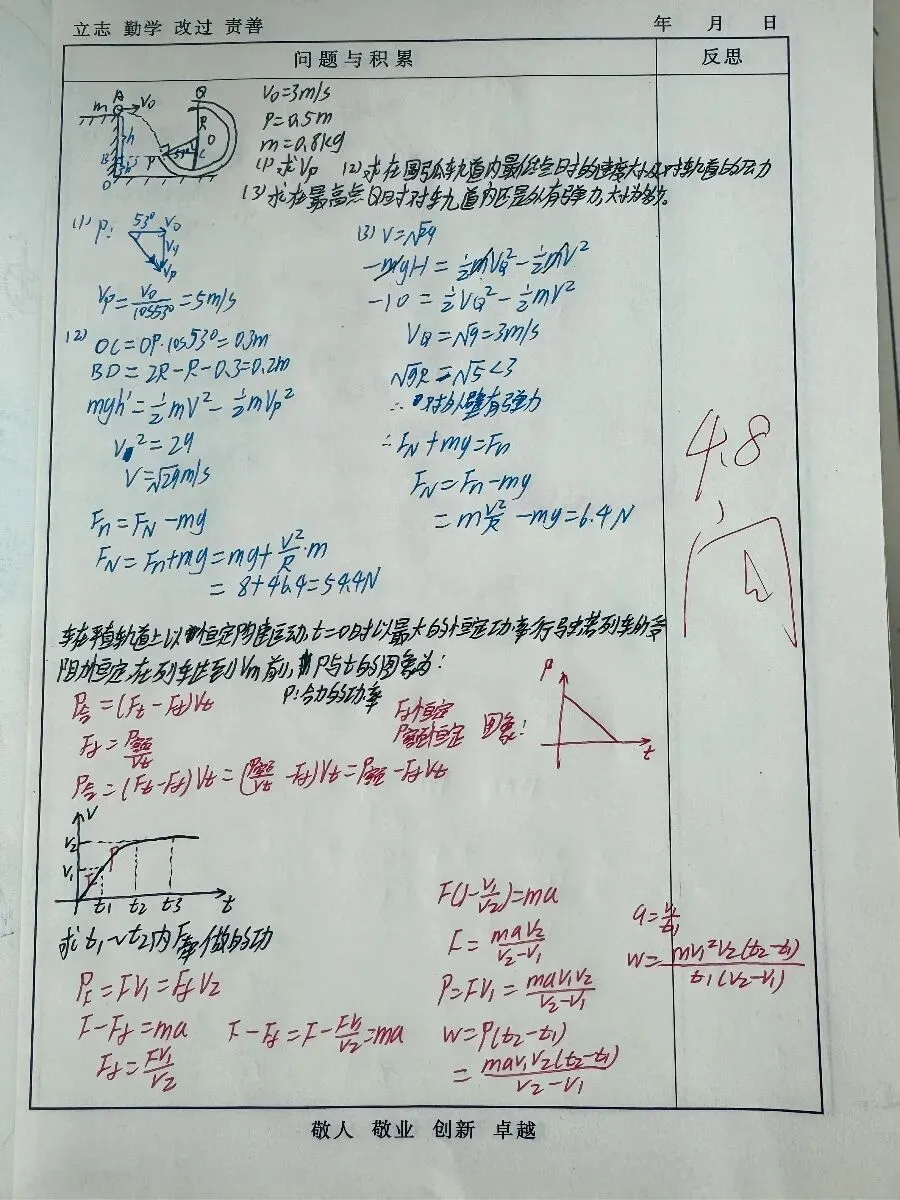 立志 勤学 改过 责善
年 月 日
问题与积累
反思
A
m
V0
Q
R
O
h
B
P
53°
C
D
V0=3m/s
R=0.5m
m=0.8kg
(1)求Vp (2)求在圆弧轨道内最低点时的速度大小及对轨道的压力
(3)求在最高点Q时对轨道内还是外有弹力,大小为多少。
(1) P: 53° V0
Vy
Vp
Vp=V0/cos53°=5m/s
(2) OC=OP·cos53°=0.3m
BD=2R-R-0.3=0.2m
mgh'=1/2mV²-1/2mVp²
V²=29
V=√29m/s
Fn=FN-mg
FN=Fn+mg=mg+V²/R·m
=8+46.4=54.4N
(3) V=√29
-mgH=1/2mVQ²-1/2mV²
-10=1/2VQ²-1/2mV²
VQ=√9=3m/s
√gR=√5<3
∴对外壁有弹力
∴FN+mg=Fn
FN=Fn-mg
=mV²/R-mg=6.4N
4.8
车在平直轨道上以恒定 t=0时以最大的恒定功率行驶若列车所受
阻力恒定,在列车达到Vm前,P与t的图象为:
P:合力的功率
P合=(Ft-Ff)Vt
Ft=P额/Vt
P合=(Ft-Ff)Vt=(P额/Vt-Ff)Vt=P额-FfVt
Ff恒定
P额恒定 图象:
P
t
V
V2
V1
t1 t2 t3 t
求t1~t2内F牵做的功
PF=FV1=FfV2
F-Ff=ma F-Ff=F-FV1/V2=ma
Ff=FV1/V2
F(1-V1/V2)=ma
F=maV2/(V2-V1)
P=FV1=maV1V2/(V2-V1)
W=P(t2-t1)
=maV1V2(t2-t1)/(V2-V1)
a=V1/t1
W=mV1²V2(t2-t1)/t1(V2-V1)
敬人 敬业 创新 卓越